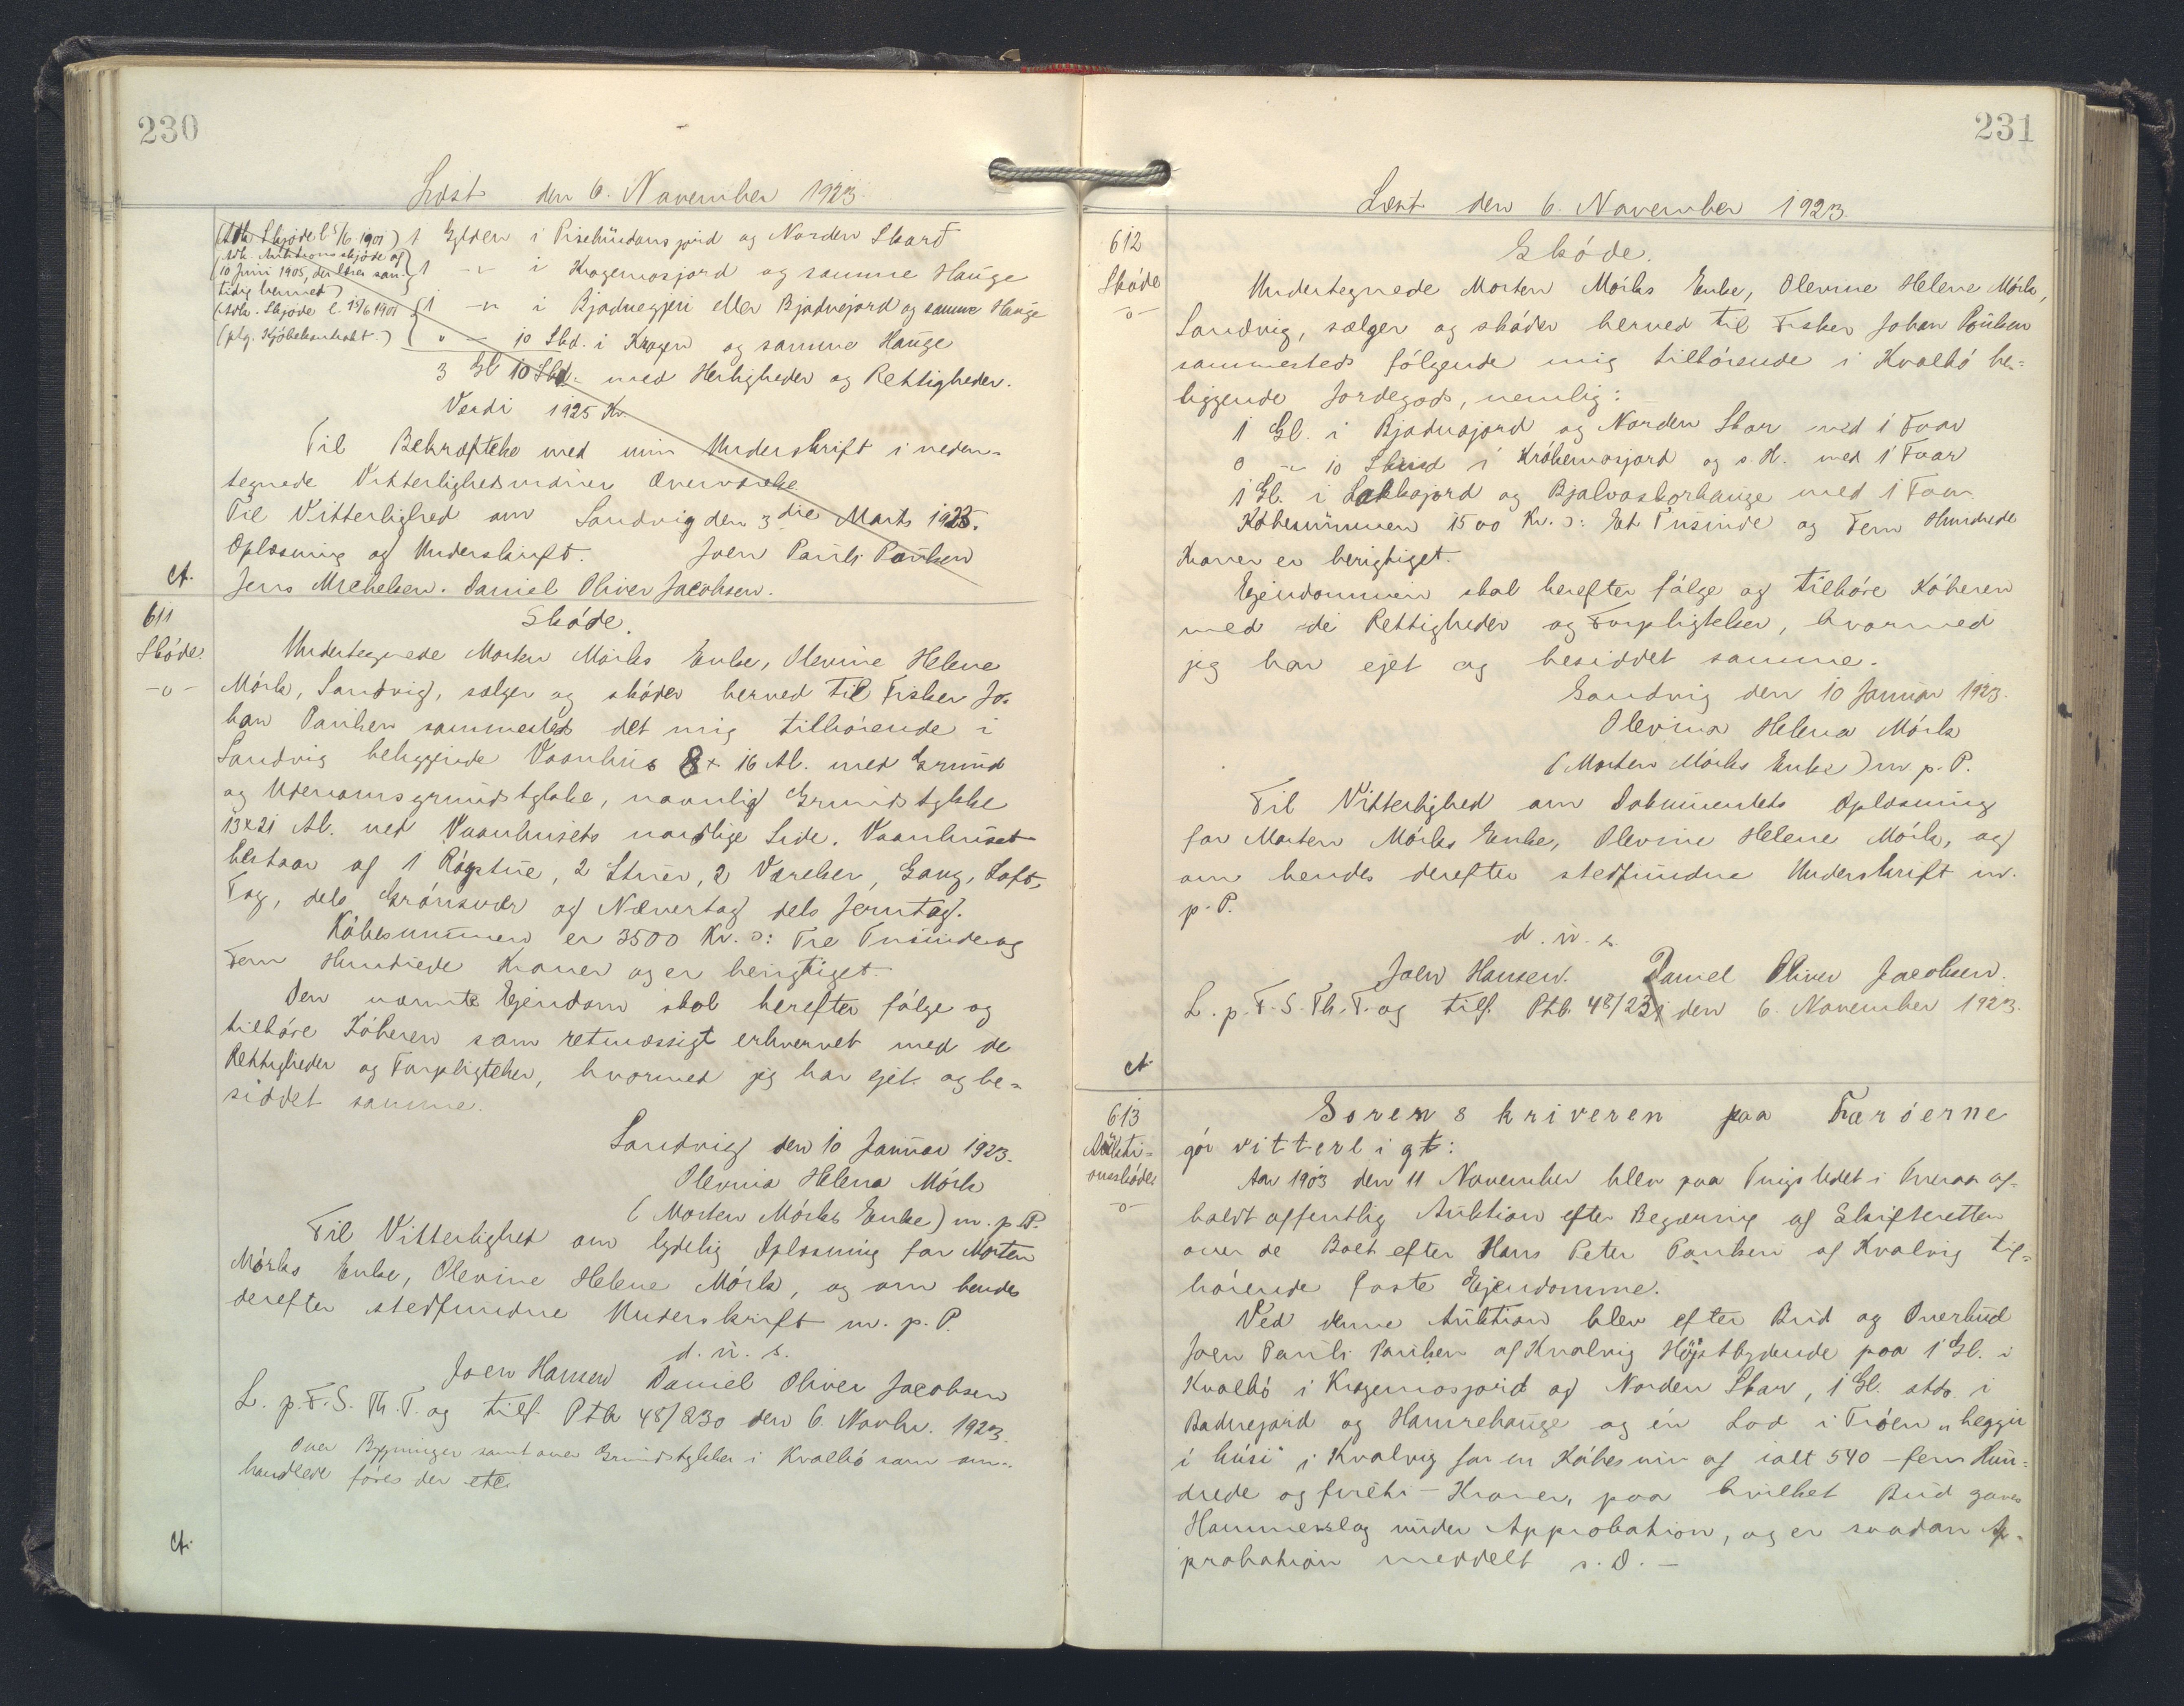 230
Læst den 6. November 1923.
(Adk. Skjøde l. 5/6 1901) 1 Gylden i Pisehúdansjørd og Norden Skarð
(Adk. Auktionsskjøde af
10 Juni 1905, der læses sam-
tidig hermed) 1 -"- i Kragemosjord og samme Hauge
(Adk. Skjøde l. 15/6 1901 1 -"- i Bjadnegjeri eller Bjadnejord og samme Hauge
(plg. Kjøbekontrakt.) " - 10 Skd. i Kragen og samme Hauge
3 Gl 10 Skd. med Herligheder og Rettigheder.
Værdi 1925 Kr.
Til Bekræftelse med min Underskrift i neden-
tegnede Vitterlighedsmænds Overværelse
Til Vitterlighed om Sandvig den 3die Marts 1923.
Oplæsning og Underskrift. Joen Pauli Poulsen
Jens Michelsen. Daniel Oliver Jacobsen.
ct.
611
Skóde.
-o-
Skóde.
Undertegnede Morten Mórks Enke, Olevine Helene
Mórk, Sandvig, sælger og skóder herved til Fisker Jo-
han Paulsen sammesteds det mig tilhórende i
Sandvig beliggende Vaanhus 8 x 16 Al. med Grund
og Udenomsgrundstykke, navnlig Grundstykke
13x21 Al. ved Vaanhusets nordlige Side. Vaanhuset
bestaar af 1 Rógstue, 2 Stuer, 2 Værelser, Gang, Loft,
Tag, dels Grónsvær og Nævertag dels Jerntag.
Kóbesummen er 3500 Kr. ɔ: Tre Tusinde og
Fem Hundrede Kroner og er berigtiget.
Den nævnte Ejendom skal herefter fólge og
tilhóre Kóberen som retmæssigt erhvervet med de
Rettigheder og Forpligtelser, hvormed jeg har ejet og be-
siddet samme.
Sandvig den 10 Januar 1923.
Olevina Helena Mórk
(Morten Mórks Enke) m. p. P.
Til Vitterlighed om lydelig Oplæsning for Morten
Mórks Enke, Olevine Helene Mórk, og om hendes
derefter stedfundne Underskrift m. p. P.
d. u. s.
Joen Hansen Daniel Oliver Jacobsen
L. p. F. S. Th. T. og tilf. Ptb. 48/230 den 6. Novbr. 1923.
Over Bygninger samt over Grundstykker i Kvalbó som om-
handlede fóres der etc.
ct.
231
Læst den 6. November 1923.
612
Skóde
-o-
Skóde.
Undertegnede Morten Mórks Enke, Olevine Helene Mórk,
Sandvig, sælger og skóder herved til Fisker Johan Poulsen
sammesteds fólgende mig tilhórende i Kvalbó be-
liggende Jordegods, nemlig:
1 Gl. i Bjadnajord og Norden Skar med 1 Faar
0 -"- 10 Skind i Krókemosjord og s. H. med 1 Faar
1 Gl. i Lakkajord og Bjalvaskorhauge med 1 Faar
Kóbesummen 1500 Kr. ɔ: Et Tusinde og Fem Hundrede
Kroner er berigtiget.
Ejendommen skal herefter fólge og tilhóre Kóberen
med de Rettigheder og Forpligtelser, hvormed
jeg har ejet og besiddet samme.
Sandvig den 10 Januar 1923.
Olevina Helena Mórk
(Morten Mórks Enke) m. p. P.
Til Vitterlighed om Dokumentets Oplæsning
for Morten Mórks Enke, Olevine Helene Mórk, og
om hendes derefter stedfundne Underskrift m.
p. P.
d. u. s.
Joen Hansen. Daniel Oliver Jacobsen.
L. p. F. S. Th. T. og tilf. Ptb. 48/231 den 6. November 1923.
ct.
613
Aukti-
onsskóde
-o-
Sorenskriveren paa Færóerne
gór vitterligt:
Aar 1903 den 11 November blev paa Tingstedet i Tveraa af-
holdt offentlig Auktion efter Begæring af Skifteretten
over de Boet efter Hans Peter Poulsen af Kvalvig til-
hórende faste Ejendomme.
Ved denne Auktion blev efter Bud og Overbud
Joen Pauli Poulsen af Kvalvig Hójstbydende paa 1 Gl. i
Kvalbó i Kragemosjord og Norden Skar, 1 Gl. stds. i
Badnejord og Hamrehauge og én Lod i Tróen "heggju
í húsi" i Kvalvig for en Kóbesum af ialt 540 - fem Hun-
drede og fyrti - Kroner, paa hvilket Bud gaves
Hammerslag under Approbation, og er saadan Ap-
probation meddelt s. D. -